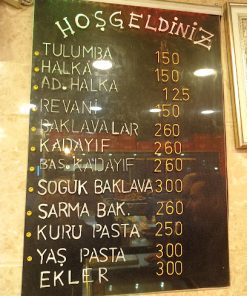 HOŞGELDİNİZ
TULUMBA 150
HALKA 150
AD. HALKA 12.5
REVANİ 150
BAKLAVALAR 260
KADAYIF 260
BAS. KADAYIF 260
SOGUK BAKLAVA 300
SARMA BAK. 260
KURU PASTA 250
YAŞ PASTA 300
EKLER 300